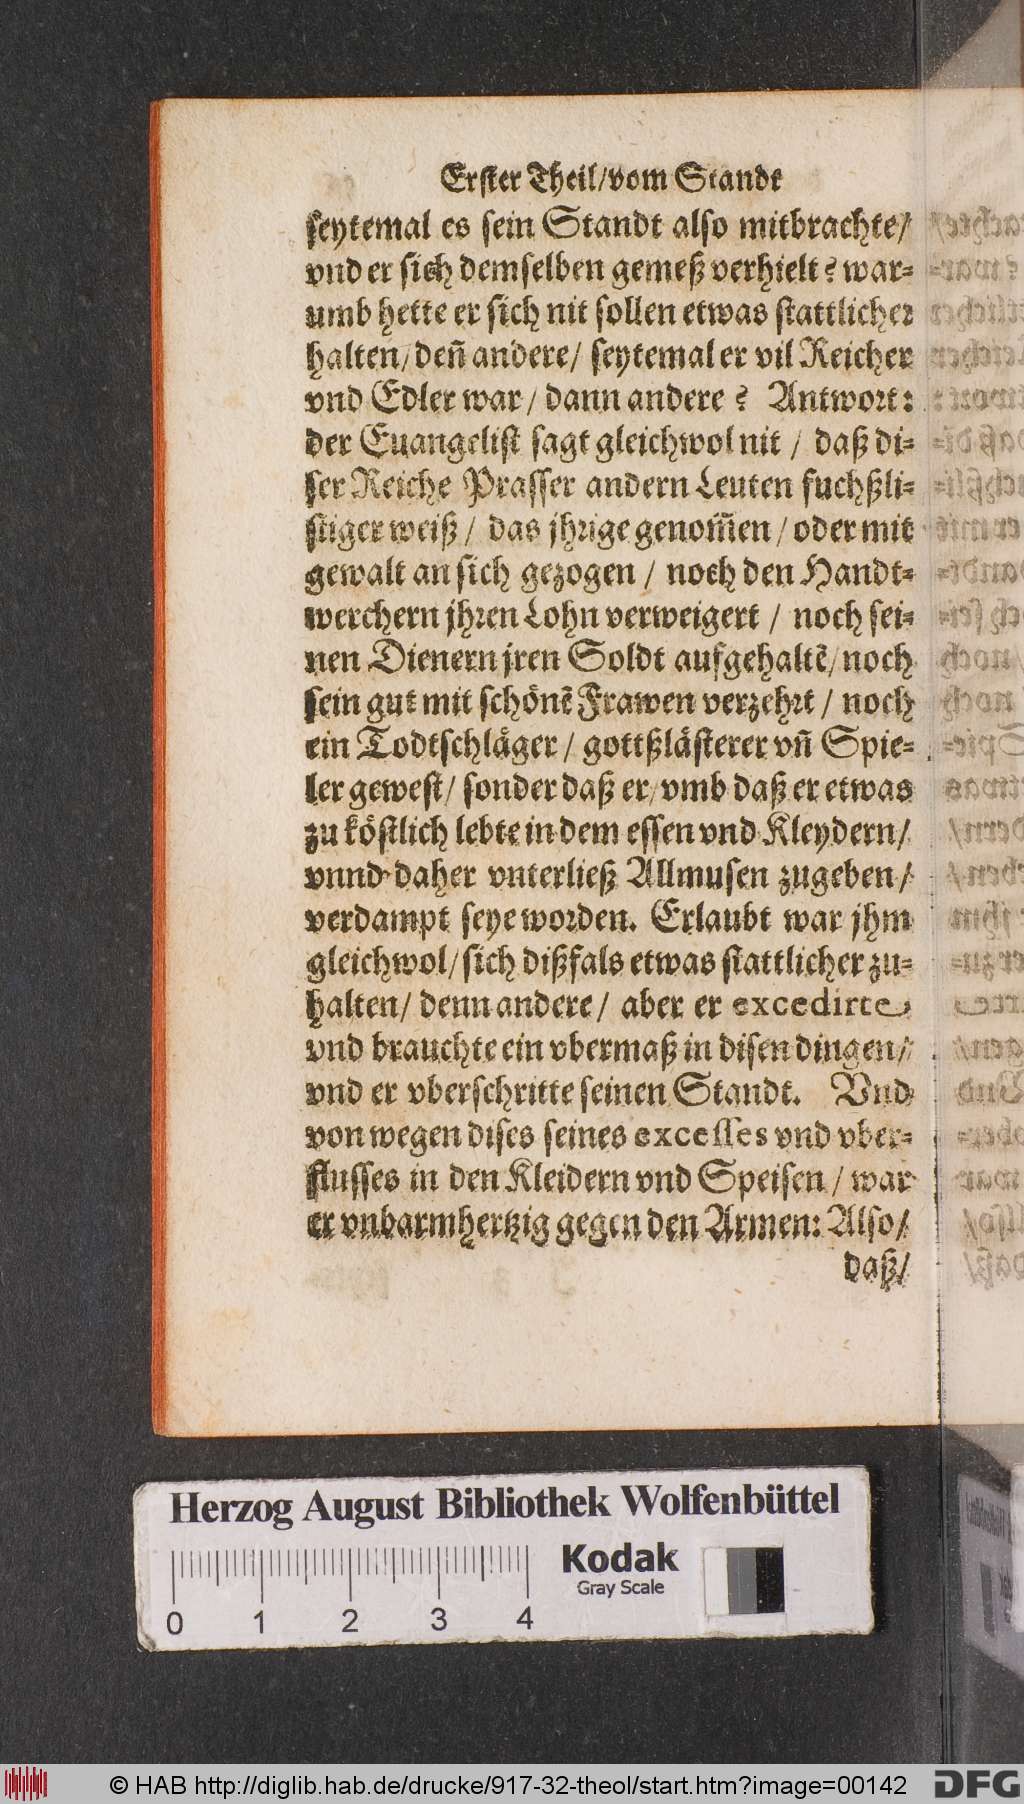 Erster Theil/vom Standt
seytemal es sein Standt also mitbrachte/
vnd er sich demselben gemeß verhielt? war-
umb hette er sich nit sollen etwas stattlicher
halten/ deñ andere/ seytemal er vil Reicher
vnd Edler war/ dann andere? Antwort:
der Euangelist sagt gleichwol nit / daß di-
ser Reiche Prasser andern Leuten fuchßli-
stiger weiß/ das jhrige genom̃en/ oder mit
gewalt an sich gezogen / noch den Handt-
werchern jhren Lohn verweigert / noch sei-
nen Dienern jren Soldt aufgehaltẽ/ noch
sein gut mit schönẽ Frawen verzehrt / noch
ein Todtschläger / gottßlästerer vñ Spie-
ler gewest/ sonder daß er/ vmb daß er etwas
zu köstlich lebte in dem essen vnd Kleydern/
vnnd daher vnterließ Allmusen zugeben/
verdampt seye worden. Erlaubt war jhm
gleichwol/ sich dißfals etwas stattlicher zu-
halten/ denn andere/ aber er excedirte
vnd brauchte ein vbermaß in disen dingen/
vnd er vberschritte seinen Standt. Vnd
von wegen dises seines excesses vnd vber-
flusses in den Kleidern vnd Speisen / war
er vnbarmhertzig gegen den Armen: Also/
daß/
Herzog August Bibliothek Wolfenbüttel
Kodak
Gray Scale
0 1 2 3 4
© HAB http://diglib.hab.de/drucke/917-32-theol/start.htm?image=00142
DFG